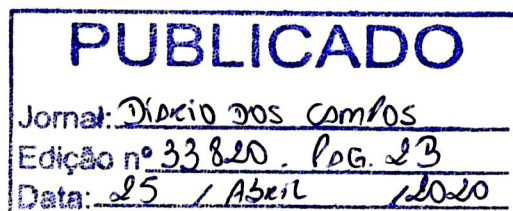 PUBLICADO
Jornal: Diário dos Campos
Edição nº 33820. Pag. 23
Data: 25 / Abril /2020